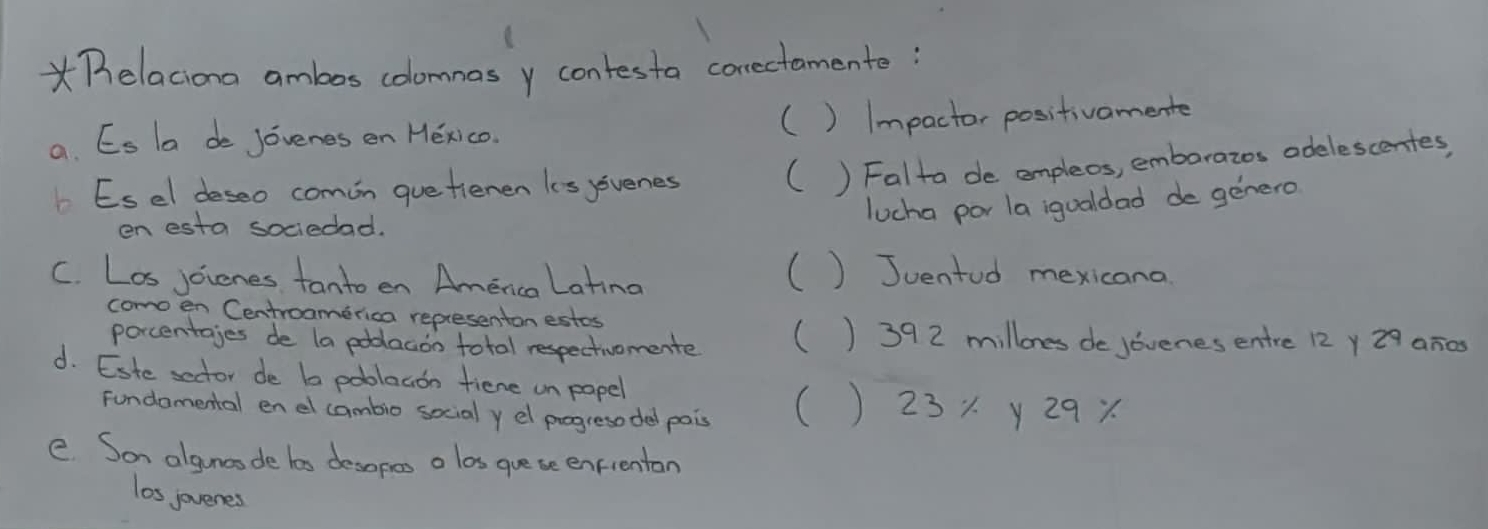 *Relaciona ambas columnas y contesta correctamente:
a. Es la de jóvenes en México.
b Es el deseo común que tienen los jóvenes
en esta sociedad.
C. Los jóvenes tanto en América Latina
como en Centroamérica representan estos
porcentajes de la población total respectivamente.
d. Este sector de la población tiene un papel
Fundamental en el cambio social y el progreso del país
e. Son algunos de los desafios a los que se enfrentan
los jovenes
( ) Impactar positivamente
( ) Falta de empleos, embarazos adelescentes,
lucha por la igualdad de género.
( ) Juventud mexicana.
( ) 392 millones de jóvenes entre 12 y 29 años
( ) 23 % y 29 %